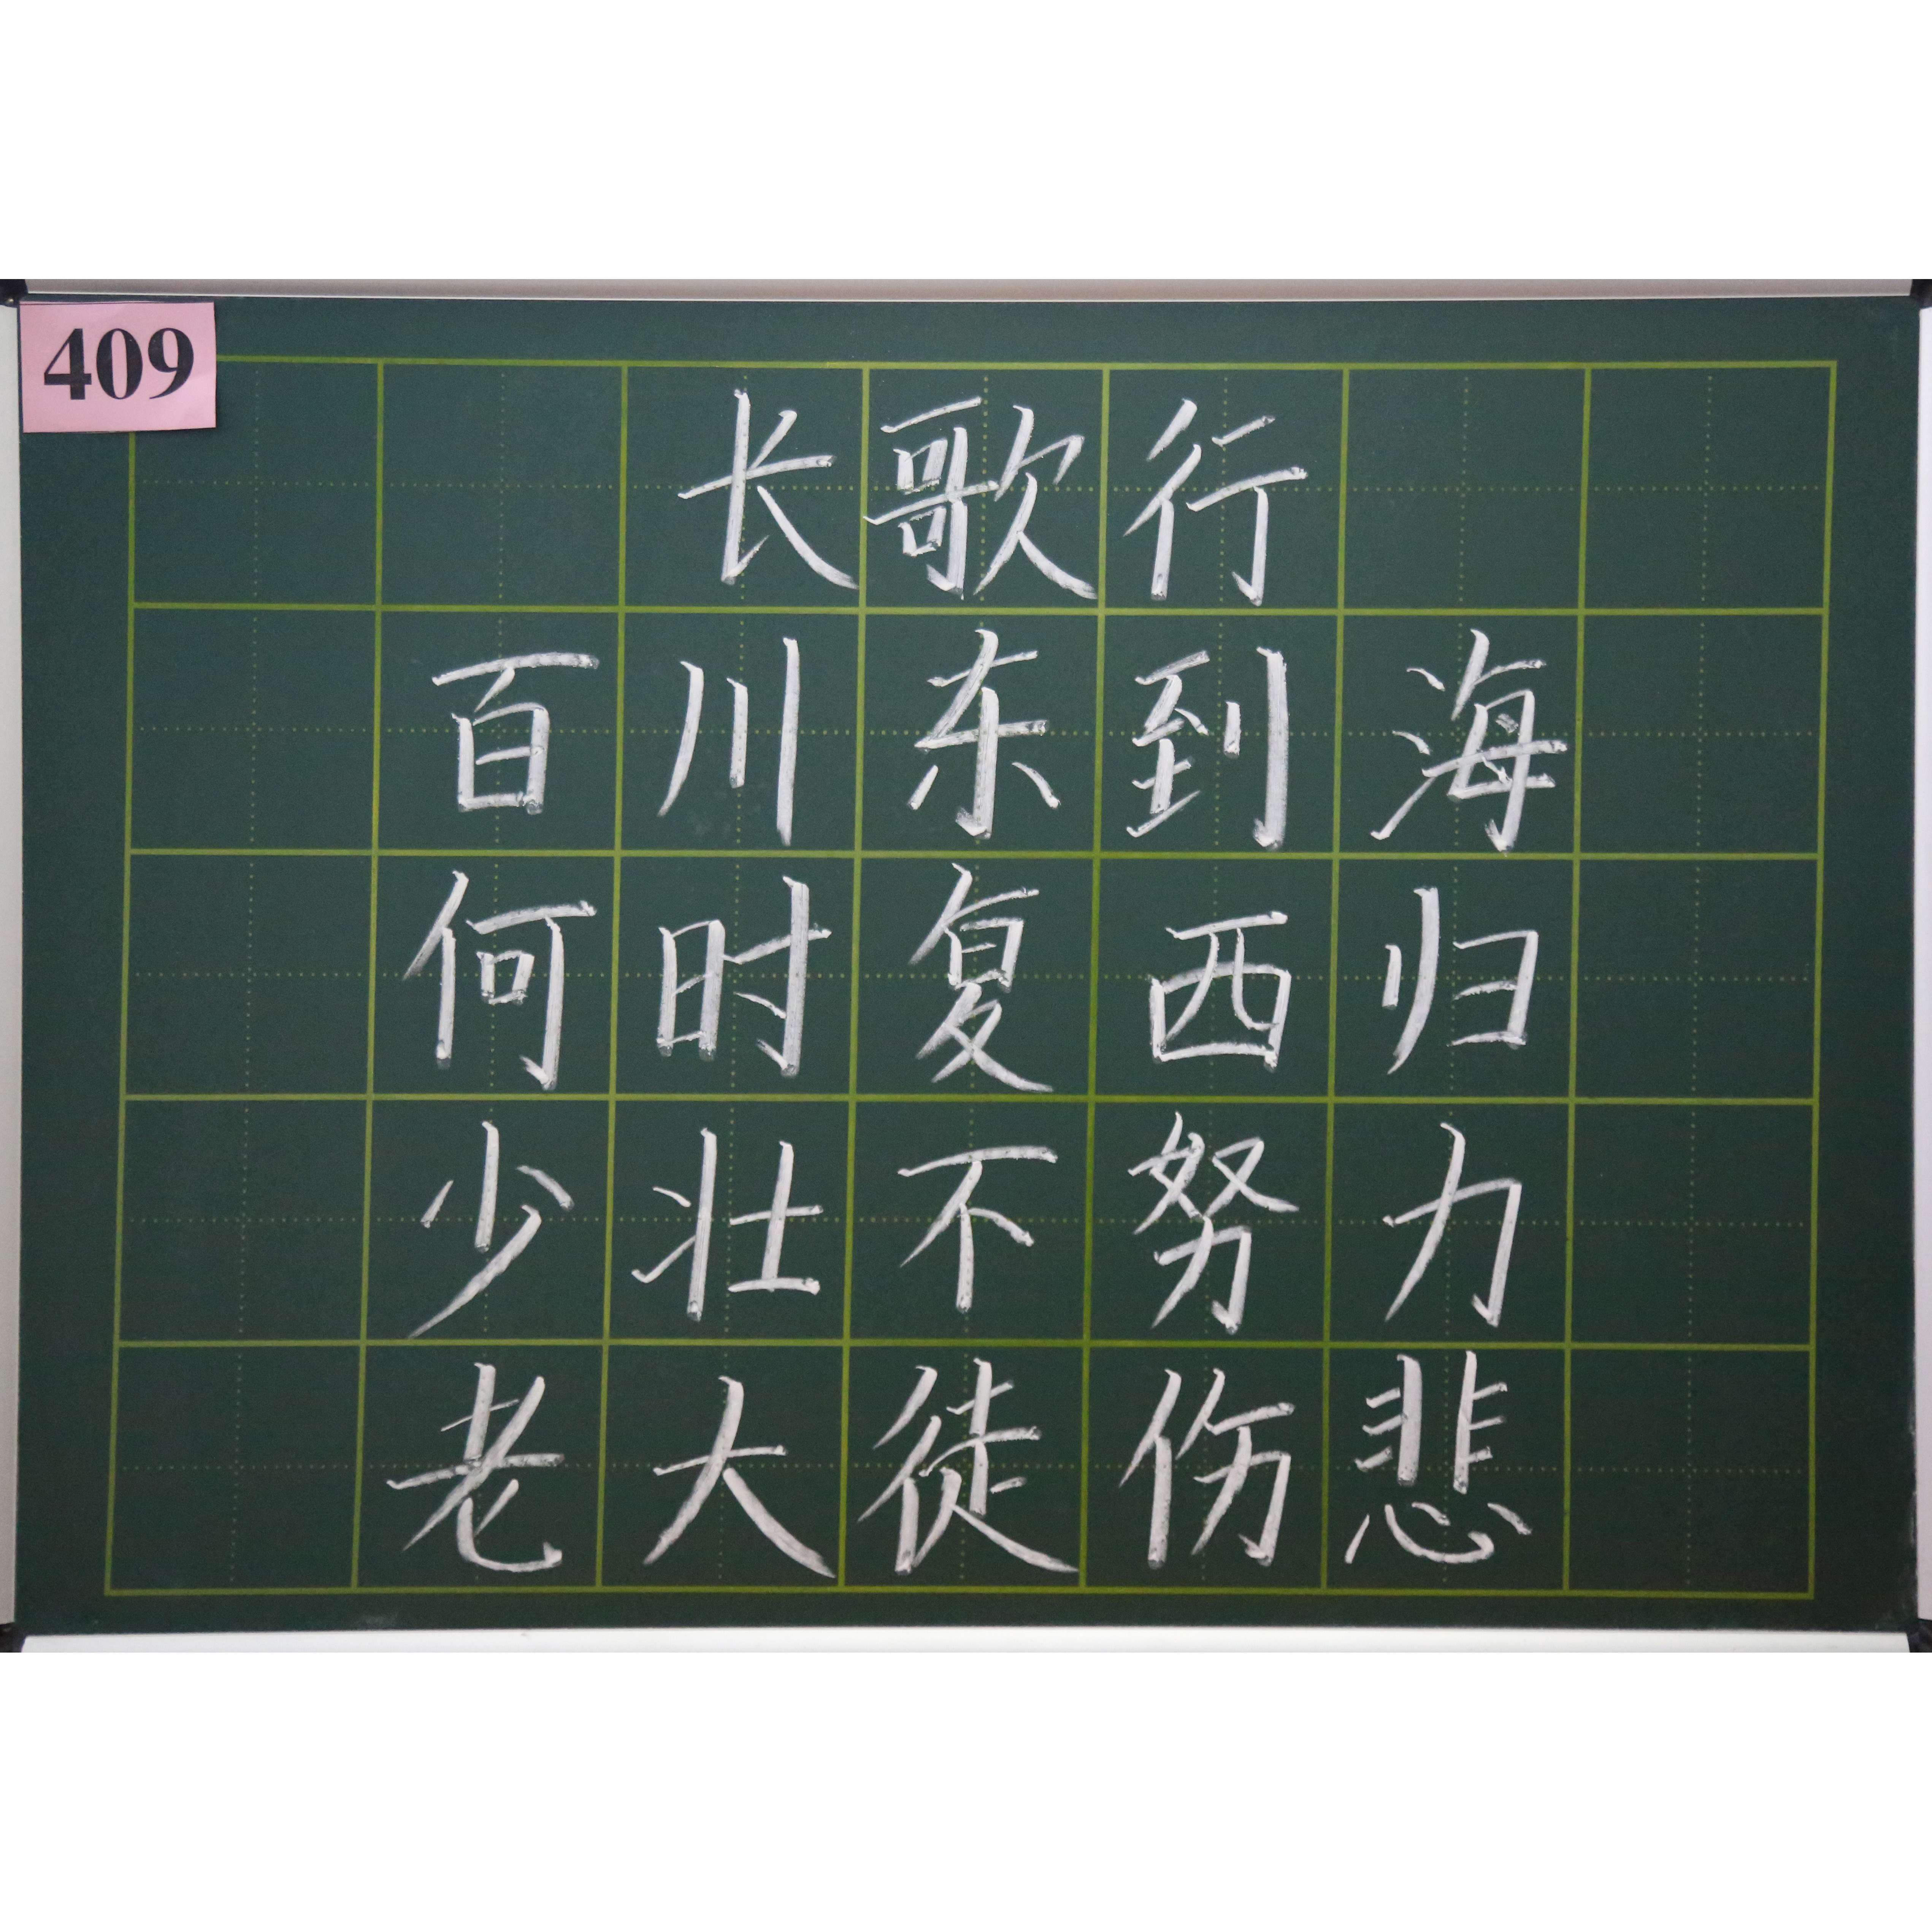 409
长歌行
百川东到海
何时复西归
少壮不努力
老大徒伤悲